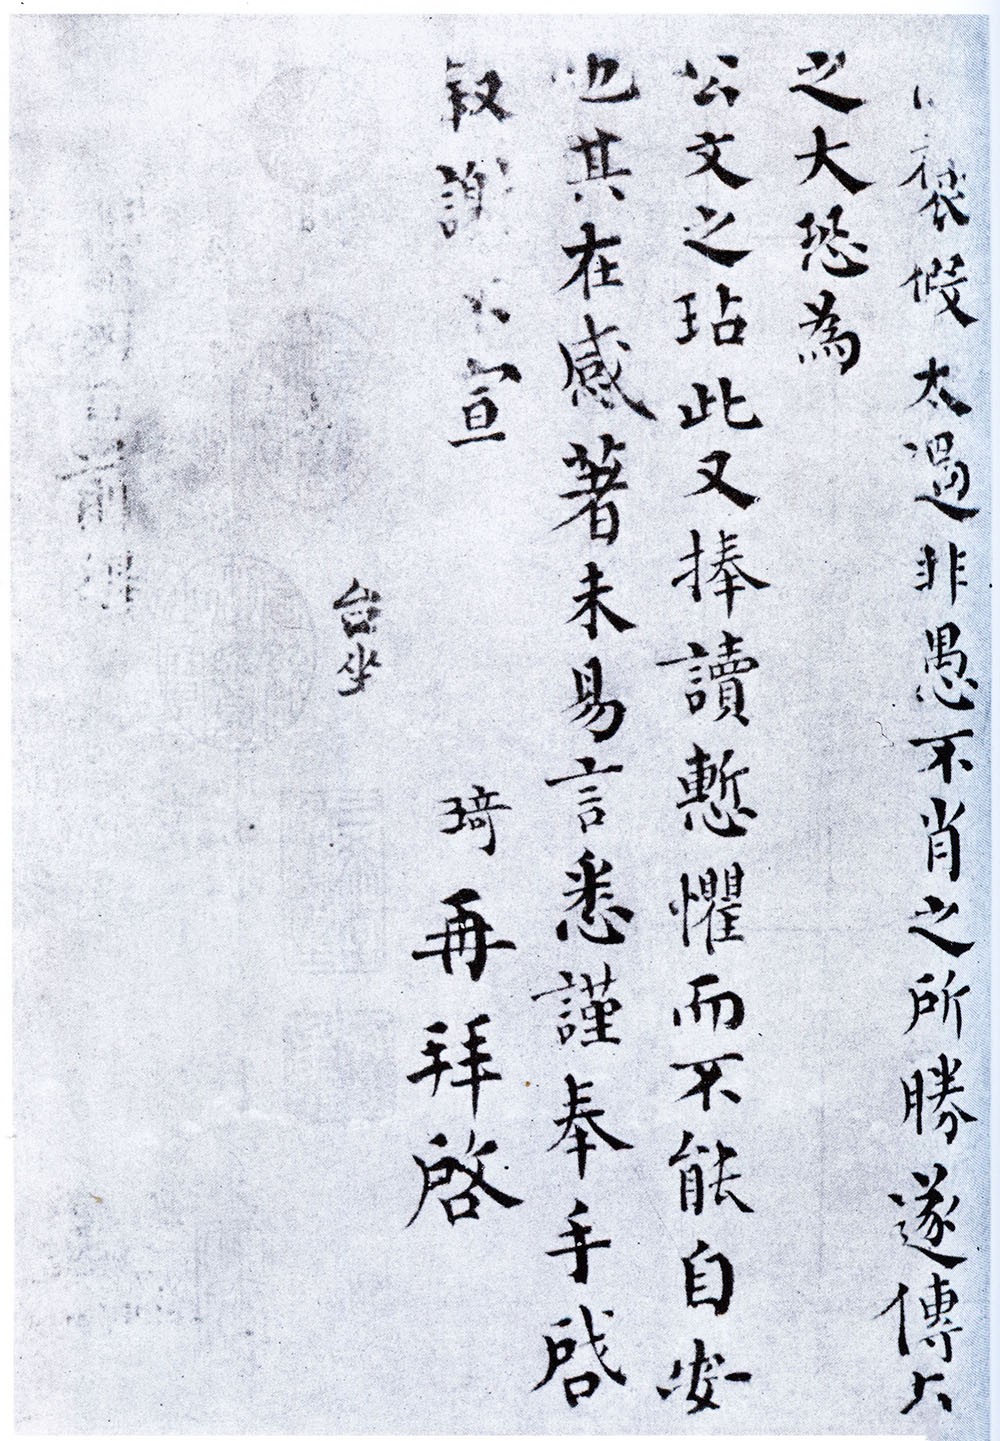 褒假太過非愚不肖之所勝遂傳大
之大恐為
公文之玷此又捧讀慙懼而不能自安
也其在感著未易言悉謹奉手啓
叙謝不宣
琦再拜啓
台坐
前